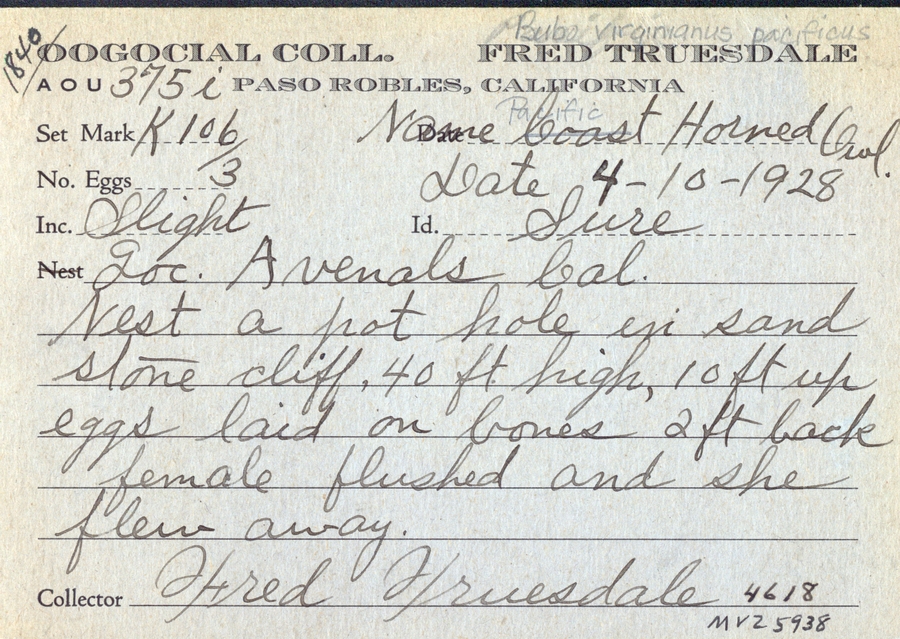 Bubo virginianus pacificus
1840
OOGOCIAL COLL. FRED TRUESDALE
AOU 375i PASO ROBLES, CALIFORNIA
Pacific
Set Mark K106 Date Name Coast Horned Owl.
No. Eggs 3 Date 4-10-1928
Inc. Slight Id. Sure
Nest Loc. Avenals Cal.
Nest a pot hole in sand
stone cliff, 40 ft high, 10 ft up
eggs laid on bones 2 ft back
female flushed and she
flew away.
Collector Fred Truesdale 4618
MVZ 5938